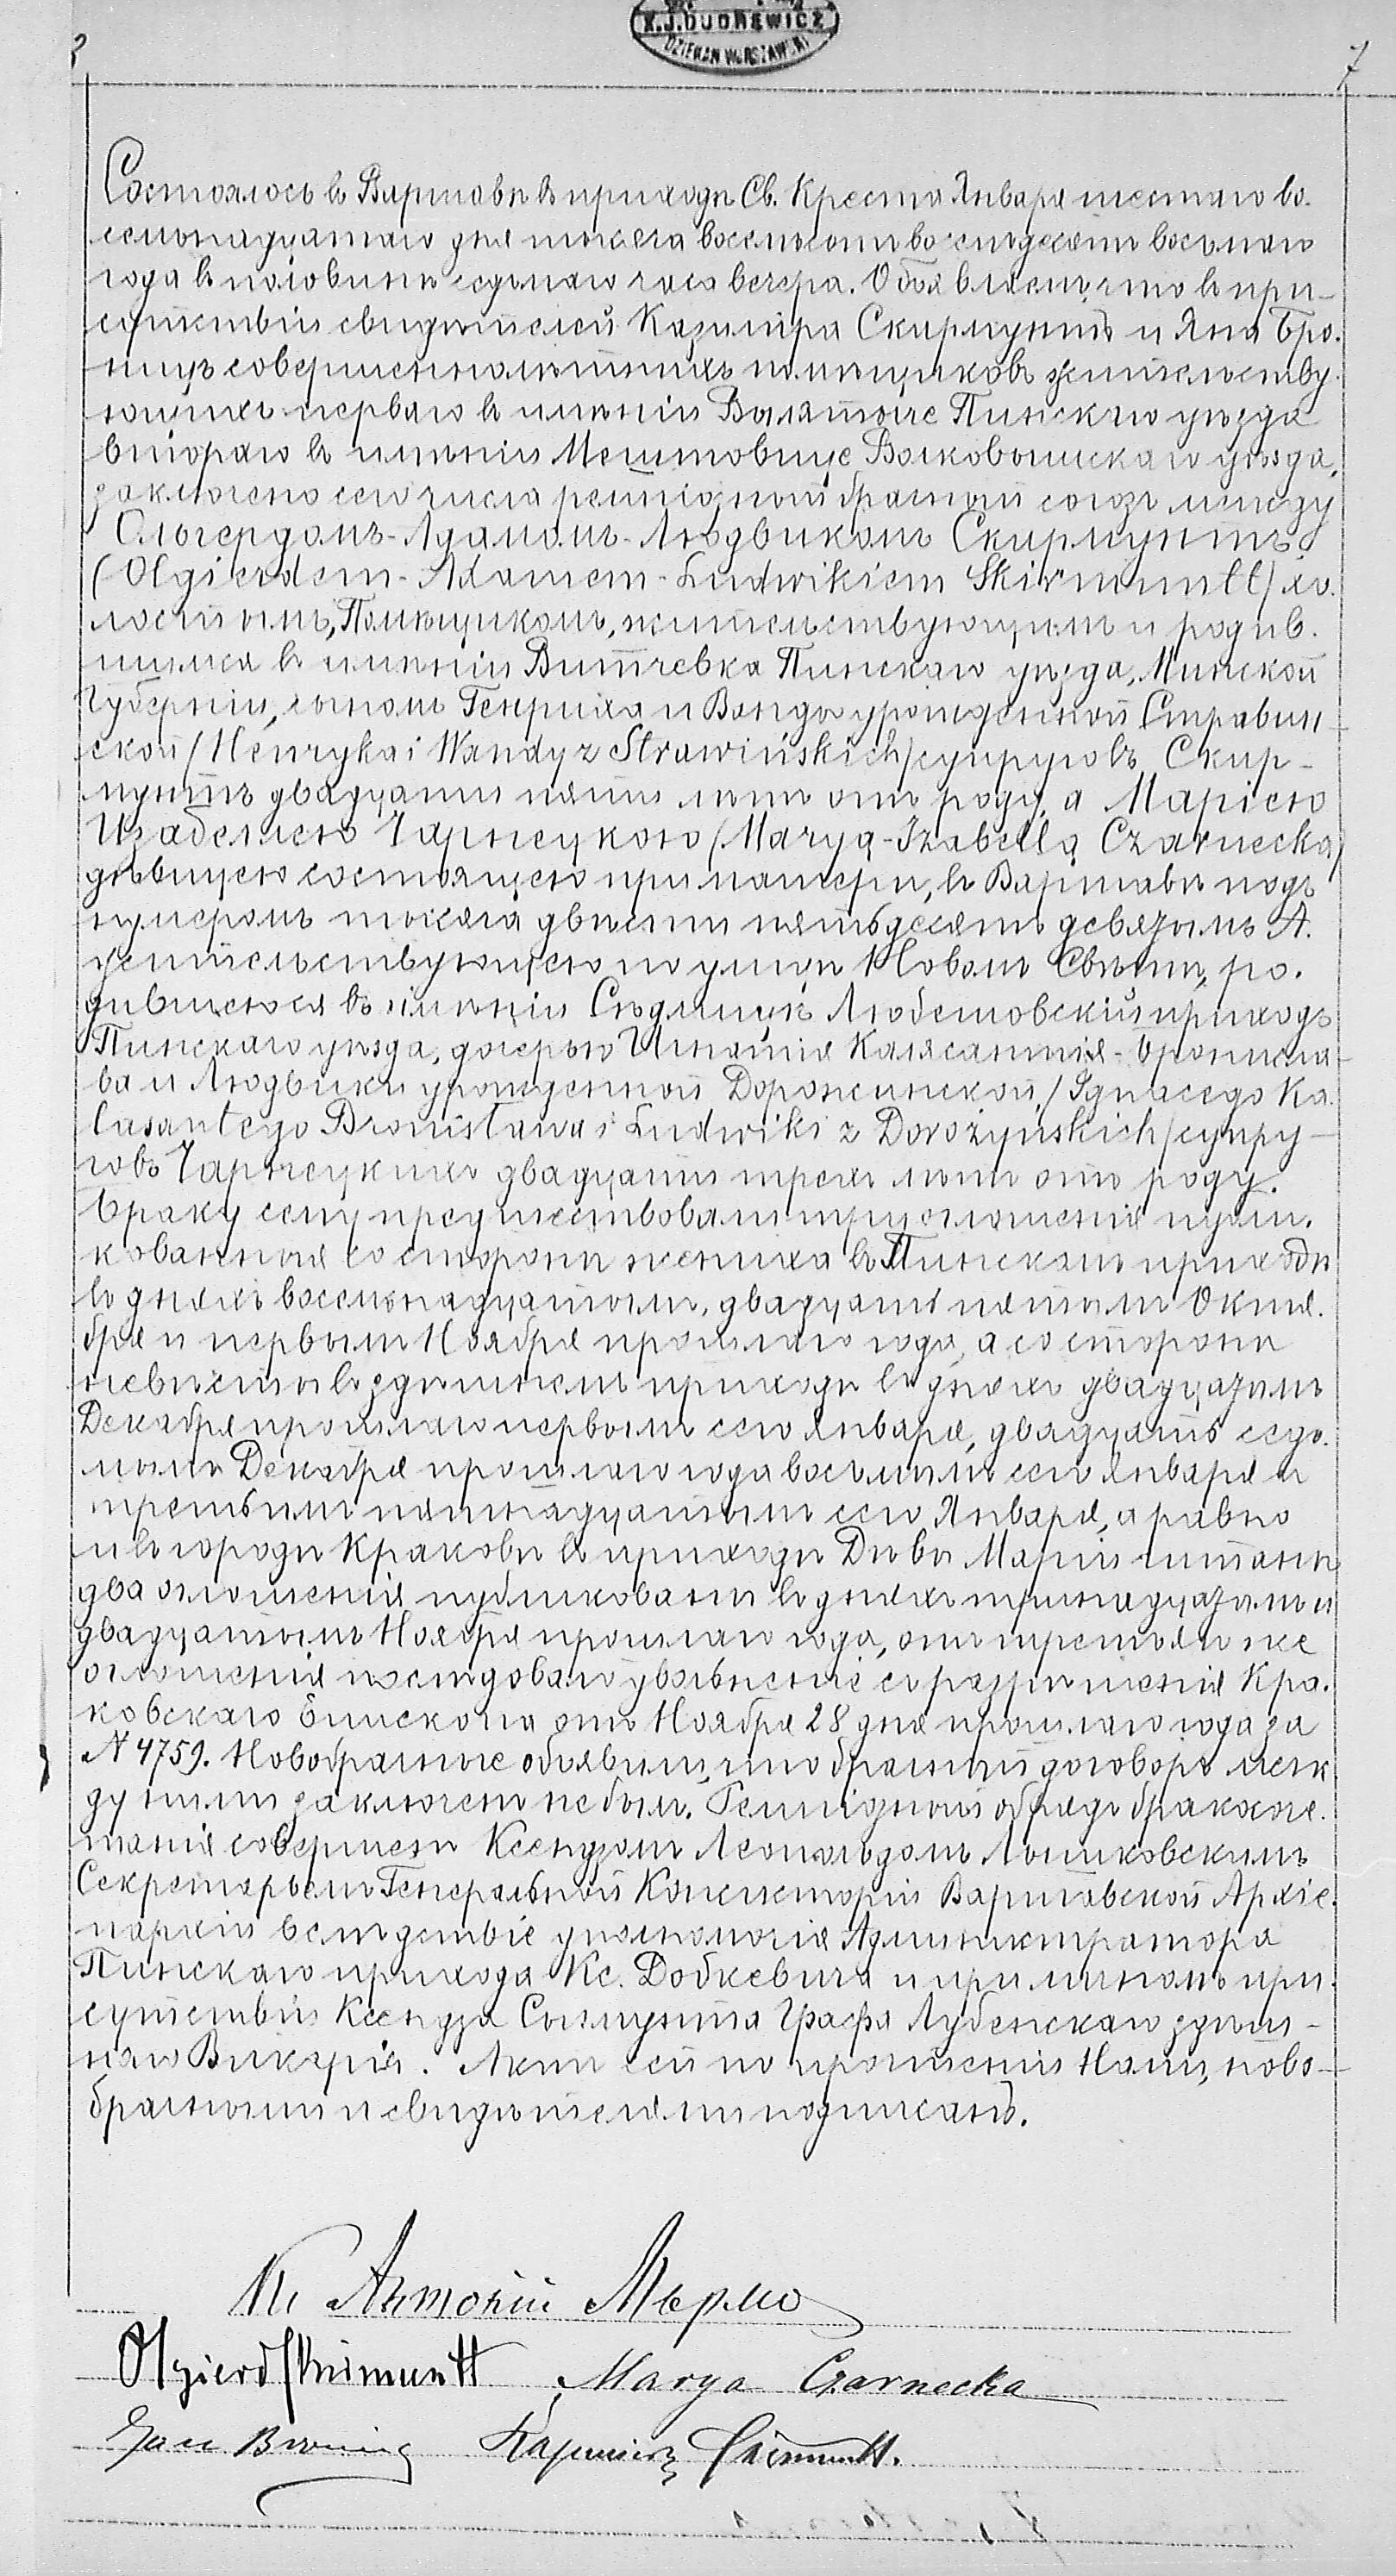 K.J. DUDREWICZ
DZIEKAN WARSZAWSKI
7
Состоялось въ Варшавѣ въ приходѣ Св. Креста Января шестаго во-
семнадцатаго дня тысяча восемьсотъ восемьдесятъ восьмаго
года въ половинѣ седьмаго часа вечера. Объявляемъ, что въ при-
сутствіи свидѣтелей Казиміра Скирмунтъ и Яна Бро-
ницъ совершеннолѣтнихъ помѣщиковъ жительству-
ющихъ перваго въ имѣніи Пинскаго уѣзда
втораго въ имѣніи Волковышскаго уѣзда,
заключенъ сего числа религіозный брачный союзъ между
Ольгердомъ-Адамомъ-Людвикомъ Скирмунтъ
(Olgierdem-Adamem-Ludwikiem Skirmuntt) хо-
лостымъ, Помѣщикомъ, жительствующимъ и родив-
шимся въ имѣніи Витчевка Пинскаго уѣзда, Минской
Губерніи, сыномъ Генриха и Ванды урожденной Стравин-
ской (Henryka i Wandy z Strawińskich) супруговъ Скир-
мунтъ двадцати пяти лѣтъ отъ роду, а Маріею
Изабеллею Чарнецкою (Maryą-Izabellą Czarnecką)
дѣвицею состоящею при матери, въ Варшавѣ подъ
нумеромъ тысяча двѣсти пятьдесятъ девятымъ А.
жительствующею по улицѣ Новомъ Свѣтѣ, ро-
дившеюся въ имѣніи Любешовскій приходъ
Пинскаго уѣзда, дочерью Игнатія Калясантія-Бронисла-
ва и Людвики урожденной Дорожинской, (Ignacego Ka-
lasantego Bronisława i Ludwiki z Dorożyńskich) супру-
говъ Чарнецкихъ двадцати трехъ лѣтъ отъ роду.
Браку сему предшествовали три оглашенія публи-
кованныя со стороны жениха въ Пинскомъ приходѣ
въ дняхъ восемнадцатомъ, двадцать пятомъ Октя-
бря и первымъ Ноября прошлаго года, а со стороны
невѣсты въ здѣшнемъ приходѣ въ дняхъ двадцатомъ
Декабря прошлаго первымъ сего Января, двадцать седь-
мымъ Декабря прошлаго года восьмымъ сего Января и
третьимъ пятнадцатымъ сего Января, а равно
и въ городѣ Краковѣ въ приходѣ Дѣвы Маріи
два оглашенія публикованы въ дняхъ тринадцатомъ и
двадцатомъ Ноября прошлаго года, отъ третьяго же
оглашенія послѣдовало увольненіе съ разрѣшенія Кра-
ковскаго Епископа отъ Ноября 28 дня прошлаго года за
N 4759. Новобрачные объявили, что брачный договоръ меж-
ду ними заключенъ не былъ. Религіозный обрядъ бракосоче-
танія совершенъ Ксендзомъ Леопольдомъ Лышковскимъ
Секретарьемъ Генеральной Консисторіи Варшавской Архіе-
пархіи вслѣдствіе уполномочія Администратора
Пинскаго прихода Кс. Добкевича и при личномъ при-
сутствіи Ксендза Сигмунта Графа Лубенскаго здѣш-
няго Викарія. Актъ сей по прочтеніи Нами, ново-
брачными и свидѣтелями подписанъ.
Кс Антоній
Olgierd Skirmuntt Marya Czarnecka
Kazimierz Skirmuntt.